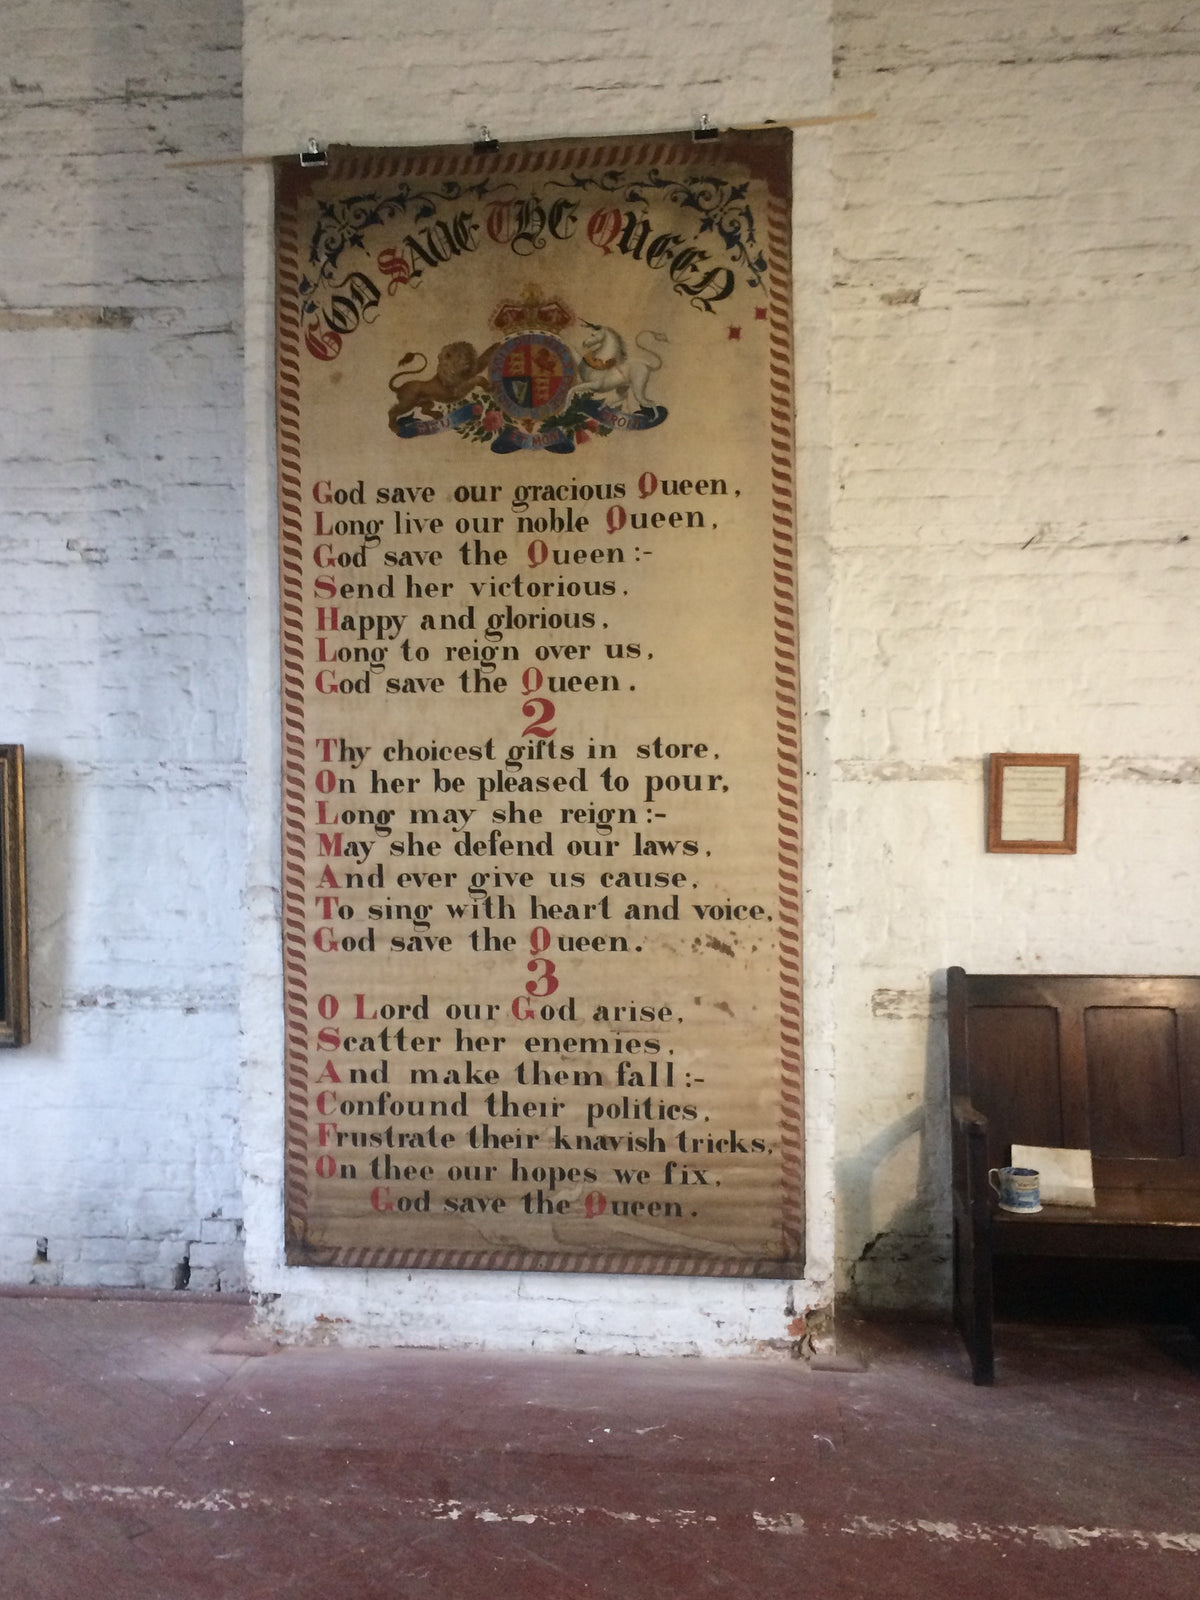 GOD SAVE THE QUEEN
God save our gracious Queen,
Long live our noble Queen,
God save the Queen:-
Send her victorious,
Happy and glorious,
Long to reign over us,
God save the Queen.
2
Thy choicest gifts in store,
On her be pleased to pour,
Long may she reign:-
May she defend our laws,
And ever give us cause,
To sing with heart and voice,
God save the Queen.
3
O Lord our God arise,
Scatter her enemies,
And make them fall:-
Confound their politics,
Frustrate their knavish tricks,
On thee our hopes we fix,
God save the Queen.